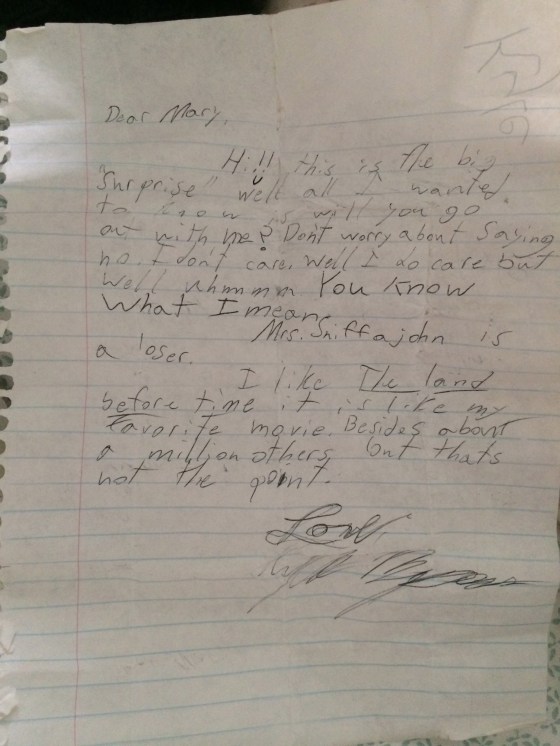 Dear Mary,
Hi!! this is the big
"Surprise" well all I wanted
to know is will you go
out with me? Don't worry about Saying
no. I don't care. Well I do care but
well uhmmm You know
what I mean.
Mrs. Sniffajohn is
a loser.
I like The land
before time it is like my
favorite movie. Besides about
a million others but thats
not the point.
Love,